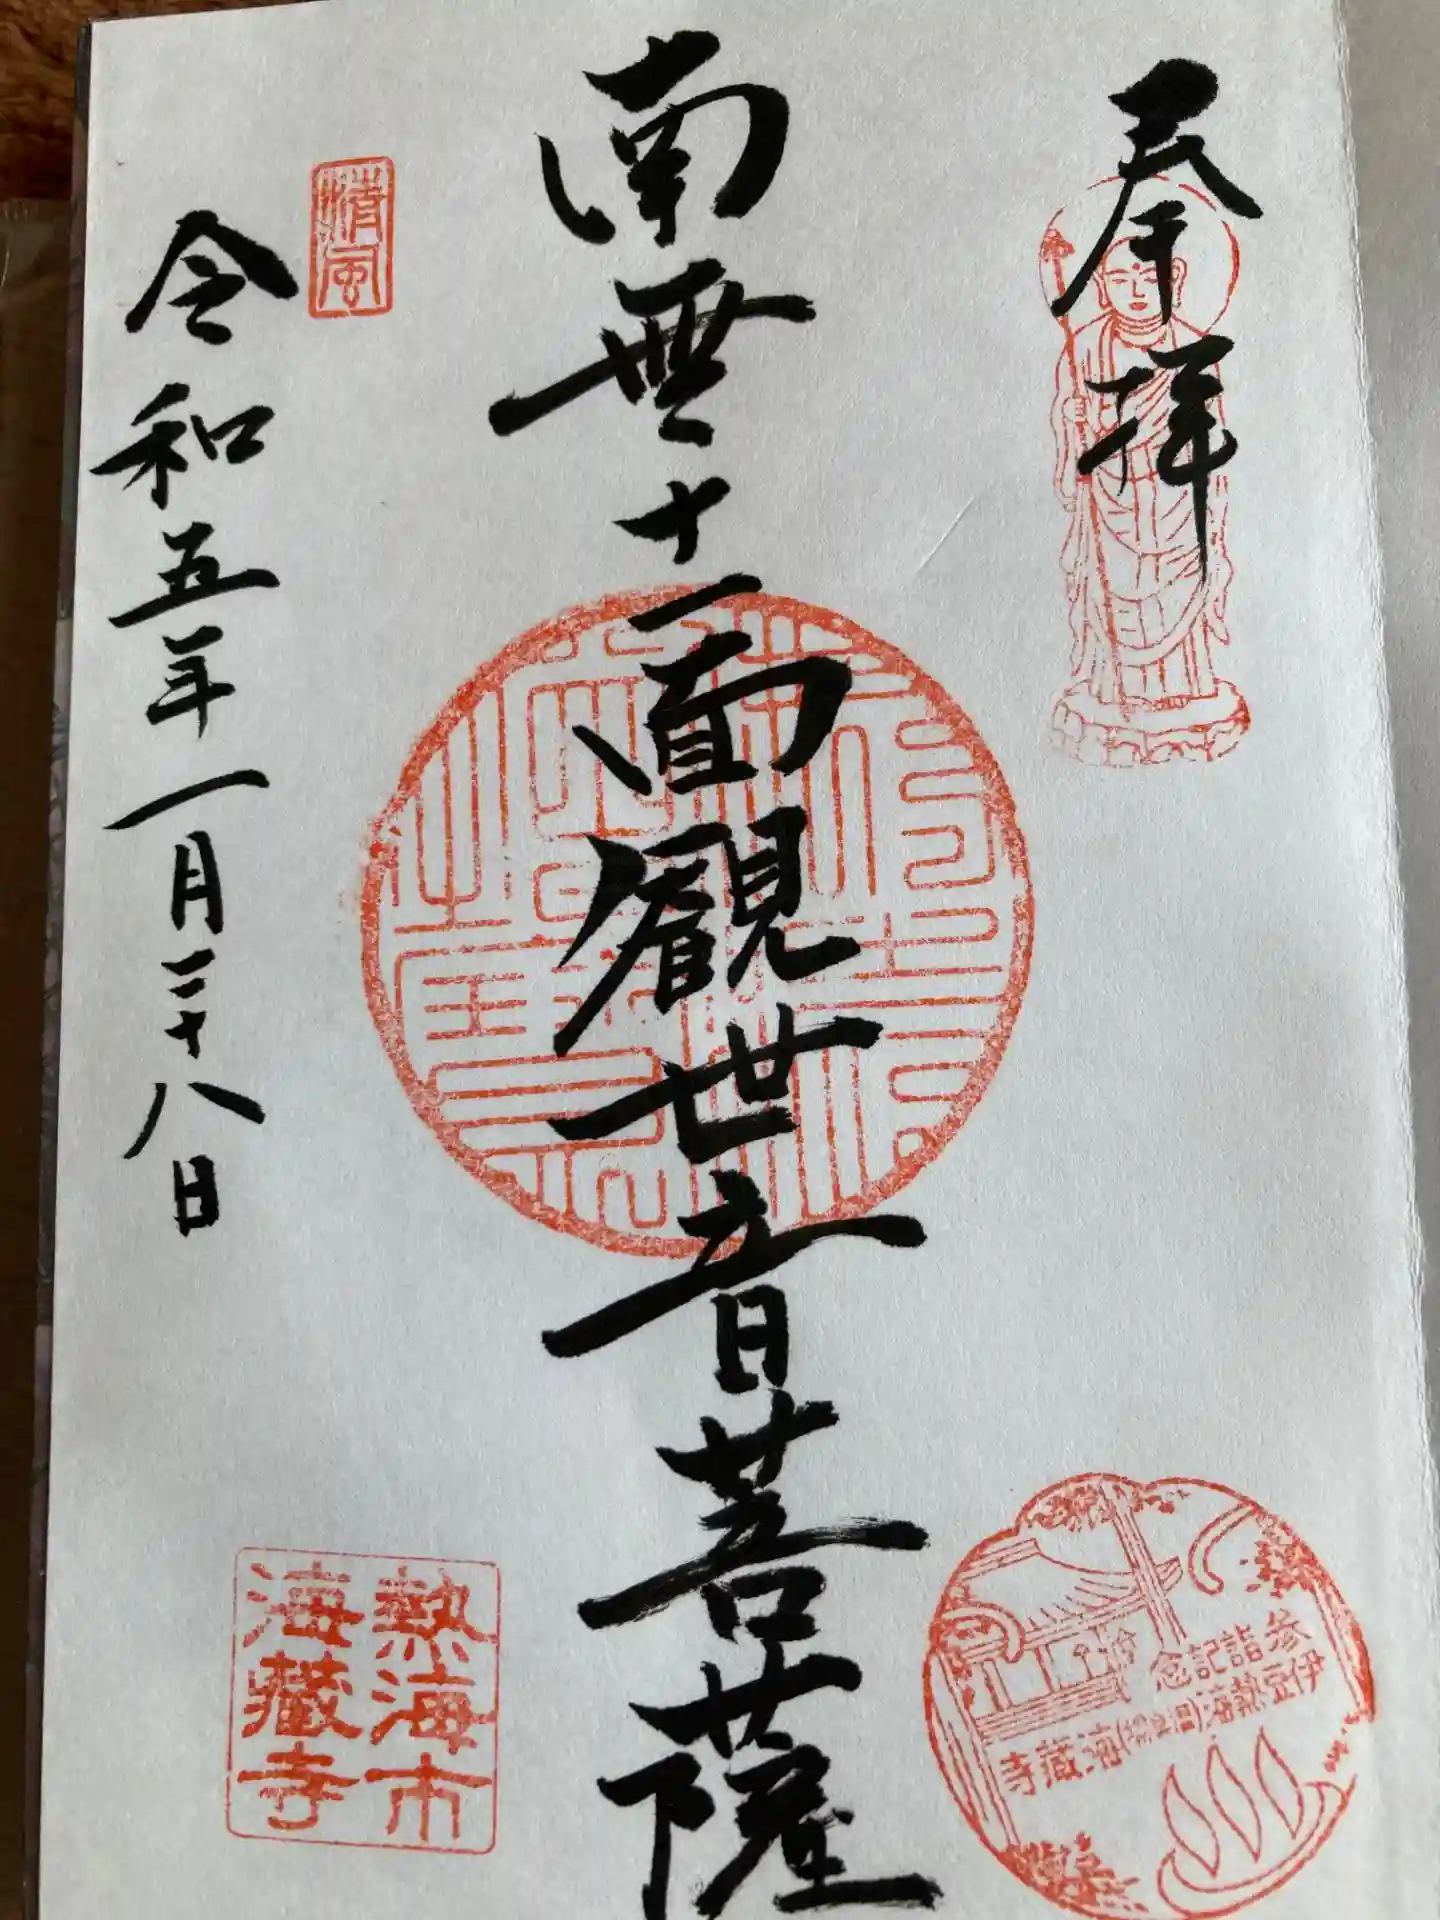 奉拝
南無十一面観世音菩薩
清風
令和五年一月二十八日
参詣記念
伊豆熱海(温泉場)海蔵寺
熱海市
海蔵寺